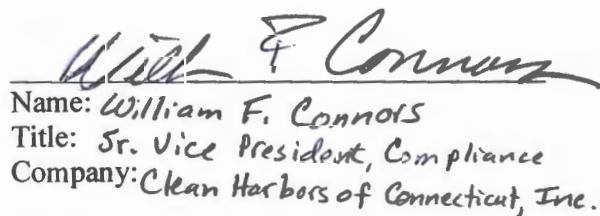 Will F Connors
Name: William F. Connors
Title: Sr. Vice President, Compliance
Company: Clean Harbors of Connecticut, Inc.